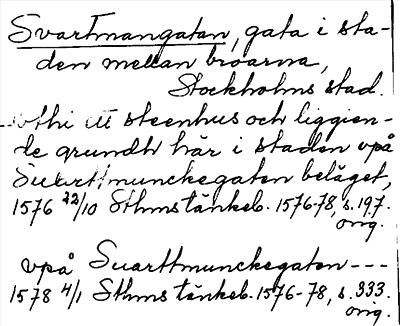 Svartmangatan, gata i sta-
den mellan broarna,
Stockholms stad.
uthi ett steenhus och liggien-
de grundh här i staden vpå
Suarttmunckegaten beläget,
1576 22/10 Sthms tänkeb. 1576-78, s. 197.
orig.
vpå Suarttmunckegaten ---
1578 4/1 Sthms tänkeb. 1576-78, s. 333.
orig.